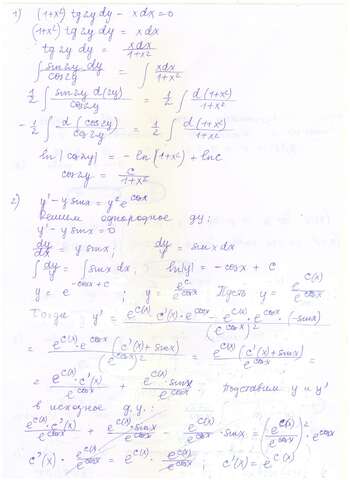 1) (1+x²) tg2y dy - x dx = 0
(1+x²) tg2y dy = x dx
tg2y dy = xdx/(1+x²)
∫ sin2y dy/cos2y = ∫ xdx/(1+x²)
1/2 ∫ sin2y d(2y)/cos2y = 1/2 ∫ d(1+x²)/(1+x²)
- 1/2 ∫ d(cos2y)/cos2y = 1/2 ∫ d(1+x²)/(1+x²)
ln|cos2y| = - ln(1+x²) + lnc
cos2y = c/(1+x²)
2) y' - y sinx = y² e^cosx
Решим однородное ду:
y' - y sinx = 0
dy/dx = y sinx; dy/y = sinx dx
∫ dy/y = ∫ sinx dx; ln|y| = - cosx + C
y = e^(-cosx + C); y = e^C/e^cosx. Пусть y = e^C(x)/e^cosx
Тогда y' = (e^C(x) · C'(x) · e^cosx - e^C(x) · e^cosx · (-sinx))/(e^cosx)² =
= e^C(x) · e^cosx (C'(x) + sinx)/(e^cosx)² = e^C(x) (C'(x) + sinx)/e^cosx =
= e^C(x) · C'(x)/e^cosx + e^C(x) · sinx/e^cosx; Подставим y и y'
в исходное д.у.:
e^C(x) · C'(x)/e^cosx + e^C(x) · sinx/e^cosx - e^C(x)/e^cosx · sinx = (e^C(x)/e^cosx)² · e^cosx
C'(x) · e^C(x)/e^cosx = e^C(x) · e^C(x)/e^cosx; C'(x) = e^C(x)